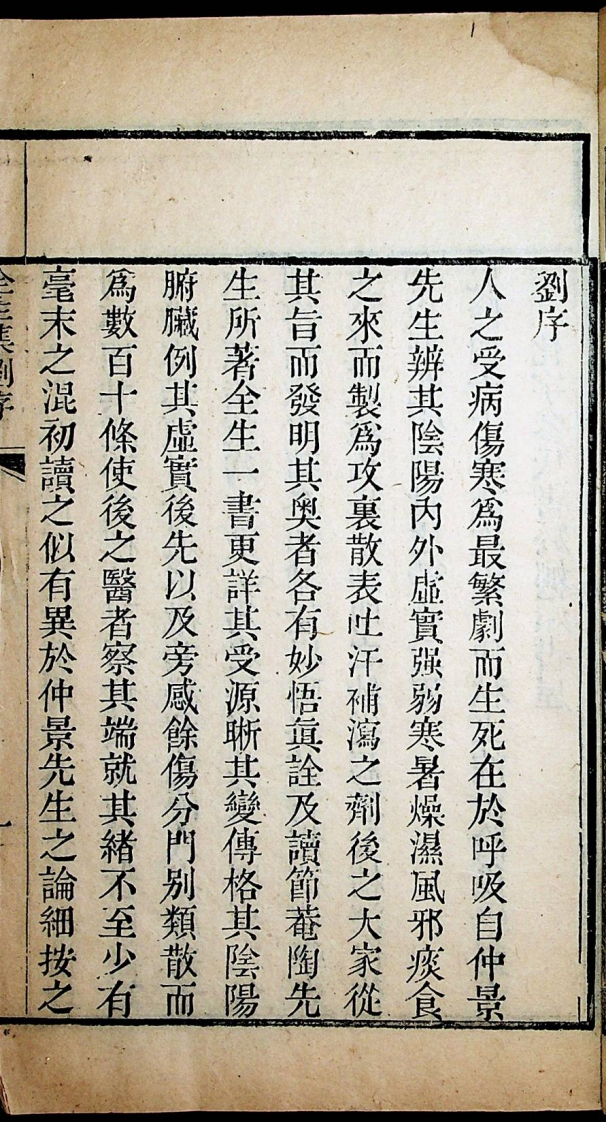 劉序
人之受病傷寒爲最繁劇而生死在於呼吸自仲景
先生辨其陰陽內外虛實强弱寒暑燥濕風邪痰食
之來而製爲攻裏散表吐汗補瀉之劑後之大家從
其旨而發明其奥者各有妙悟眞詮及讀節菴陶先
生所著全生一書更詳其受源晰其變傳格其陰陽
腑臟例其虛實後先以及旁感餘傷分門別類散而
爲數百十條使後之醫者察其端就其緒不至少有
毫末之混初讀之似有異於仲景先生之論細按之
全生集劉序
一